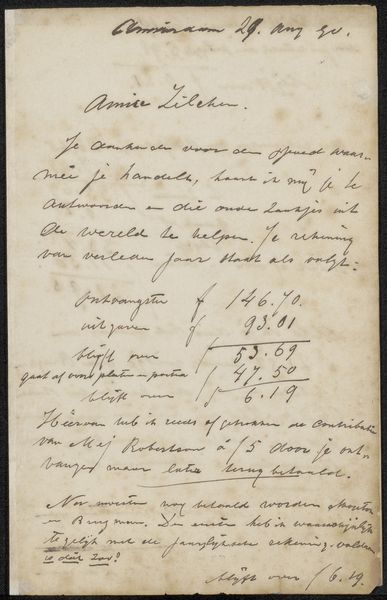 Amsterdam 29. Aug 90.
Amice Zilcken.
Je dankende voor den spoed waar-
mêe je handelt, haast ik mij je te
antwoorden en die oude zaakjes uit
de wereld te helpen. Je rekening
van verleden jaar staat als volgt:
ontvangsten f 146.70
uitgaven f 93.01
blijft over f 53.69
gaat af voor platen en porto f 47.50
blijft over f 6.19
Hiervan heb ik reeds afgenomen de contributie
van Mej Robertson à f 5 door je ont-
vangen maar later terug betaald.
Nu moeten nog betaald worden
en Bingman. De eerste heb ik waarschijnlijk
te gelijk met de jaarlijksche rekening voldaan
is dat zoo?
blijft over f 6.19.